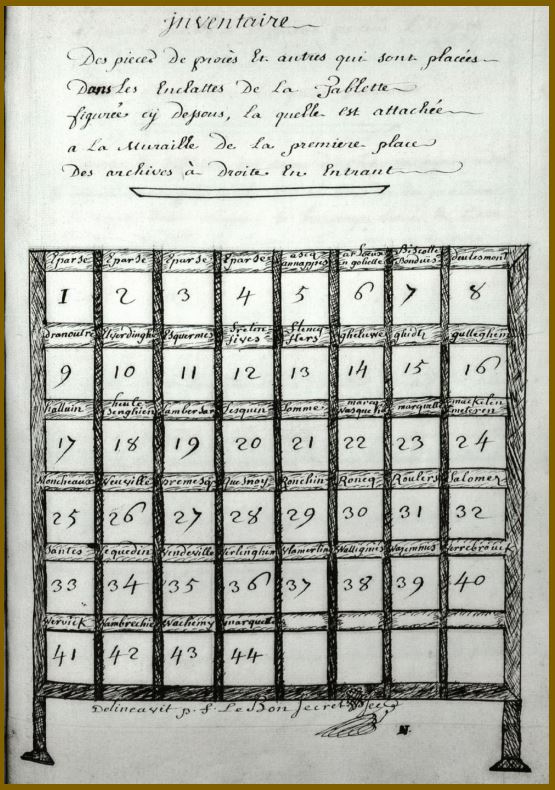 inventaire
Des pieces de procès Et autres qui sont placées
Dans Les Enclattes de La Tablette
figurée cÿ dessous, La quelle Est attachée
a La Muraille de La premiere place
Des archives à Droite En Entrant
Eparse Eparse Eparse Eparse ascq annappes Biscotte Bondues deulesmont
1 2 3 4 5 6 7 8
dranoutre Elverdinghe Esquermes fretin fives flencq flers gheluwe ghidts gulleghem
9 10 11 12 13 14 15 16
halluin heule henghien Lambersar Lesquin Lomme marcq wasquehal marquette mackelen meteren
17 18 19 20 21 22 23 24
Moncheaux Neuville premesq quesnoy Ronchin Roncq Roulers Salomez
25 26 27 28 29 30 31 32
Santes sequedin Vendeville Verlinghem Vlamertin Wattignies Wazemmes
33 34 35 36 37 38 39 40
Wervick Wambrechie Wachemy
41 42 43 44
Delineavit p. f. Le Bon Secret
N.